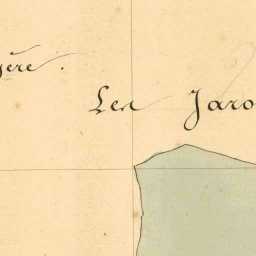 gère.
Les Jaro